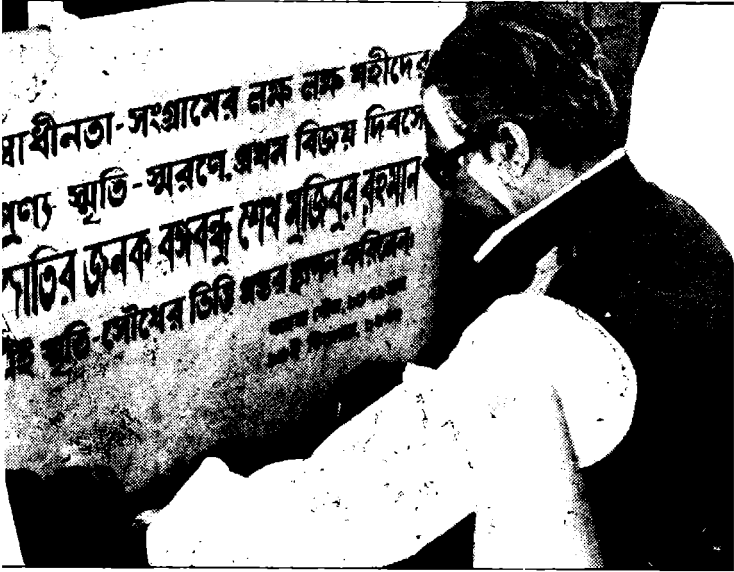 স্বাধীনতা-সংগ্রামের লক্ষ লক্ষ শহীদের
পুণ্য স্মৃতি-স্মরণে প্রথম বিজয় দিবসে
জাতির জনক বঙ্গবন্ধু শেখ মুজিবুর রহমান
এই স্মৃতি-সৌধের ভিত্তি প্রস্তর স্থাপন করিলেন